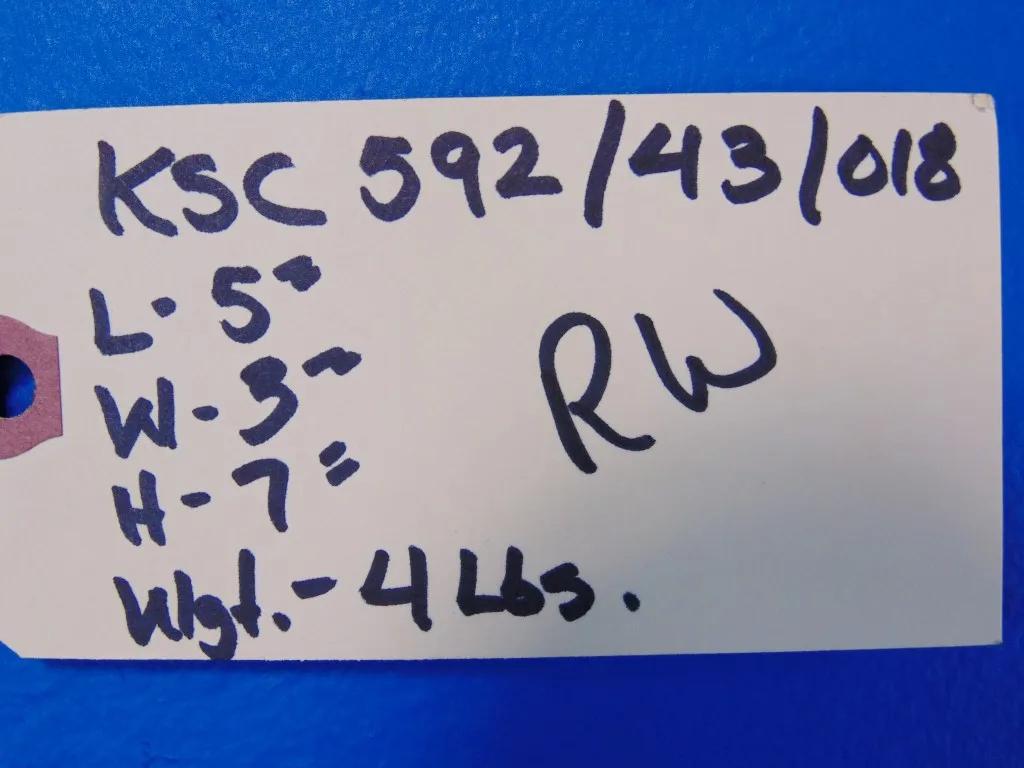 KSC 592/43/018
L- 5"
W- 3"
H- 7"
RW
Wgt.- 4 Lbs.